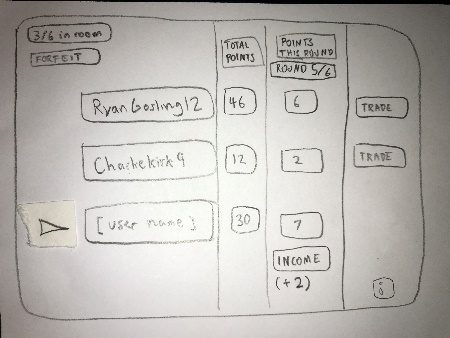 3/6 in room
FORFEIT
TOTAL POINTS
POINTS THIS ROUND
ROUND 5/6
RyanGosling12 46 6 TRADE
Charliekirk9 12 2 TRADE
[user name] 30 7
INCOME
(+2)
i